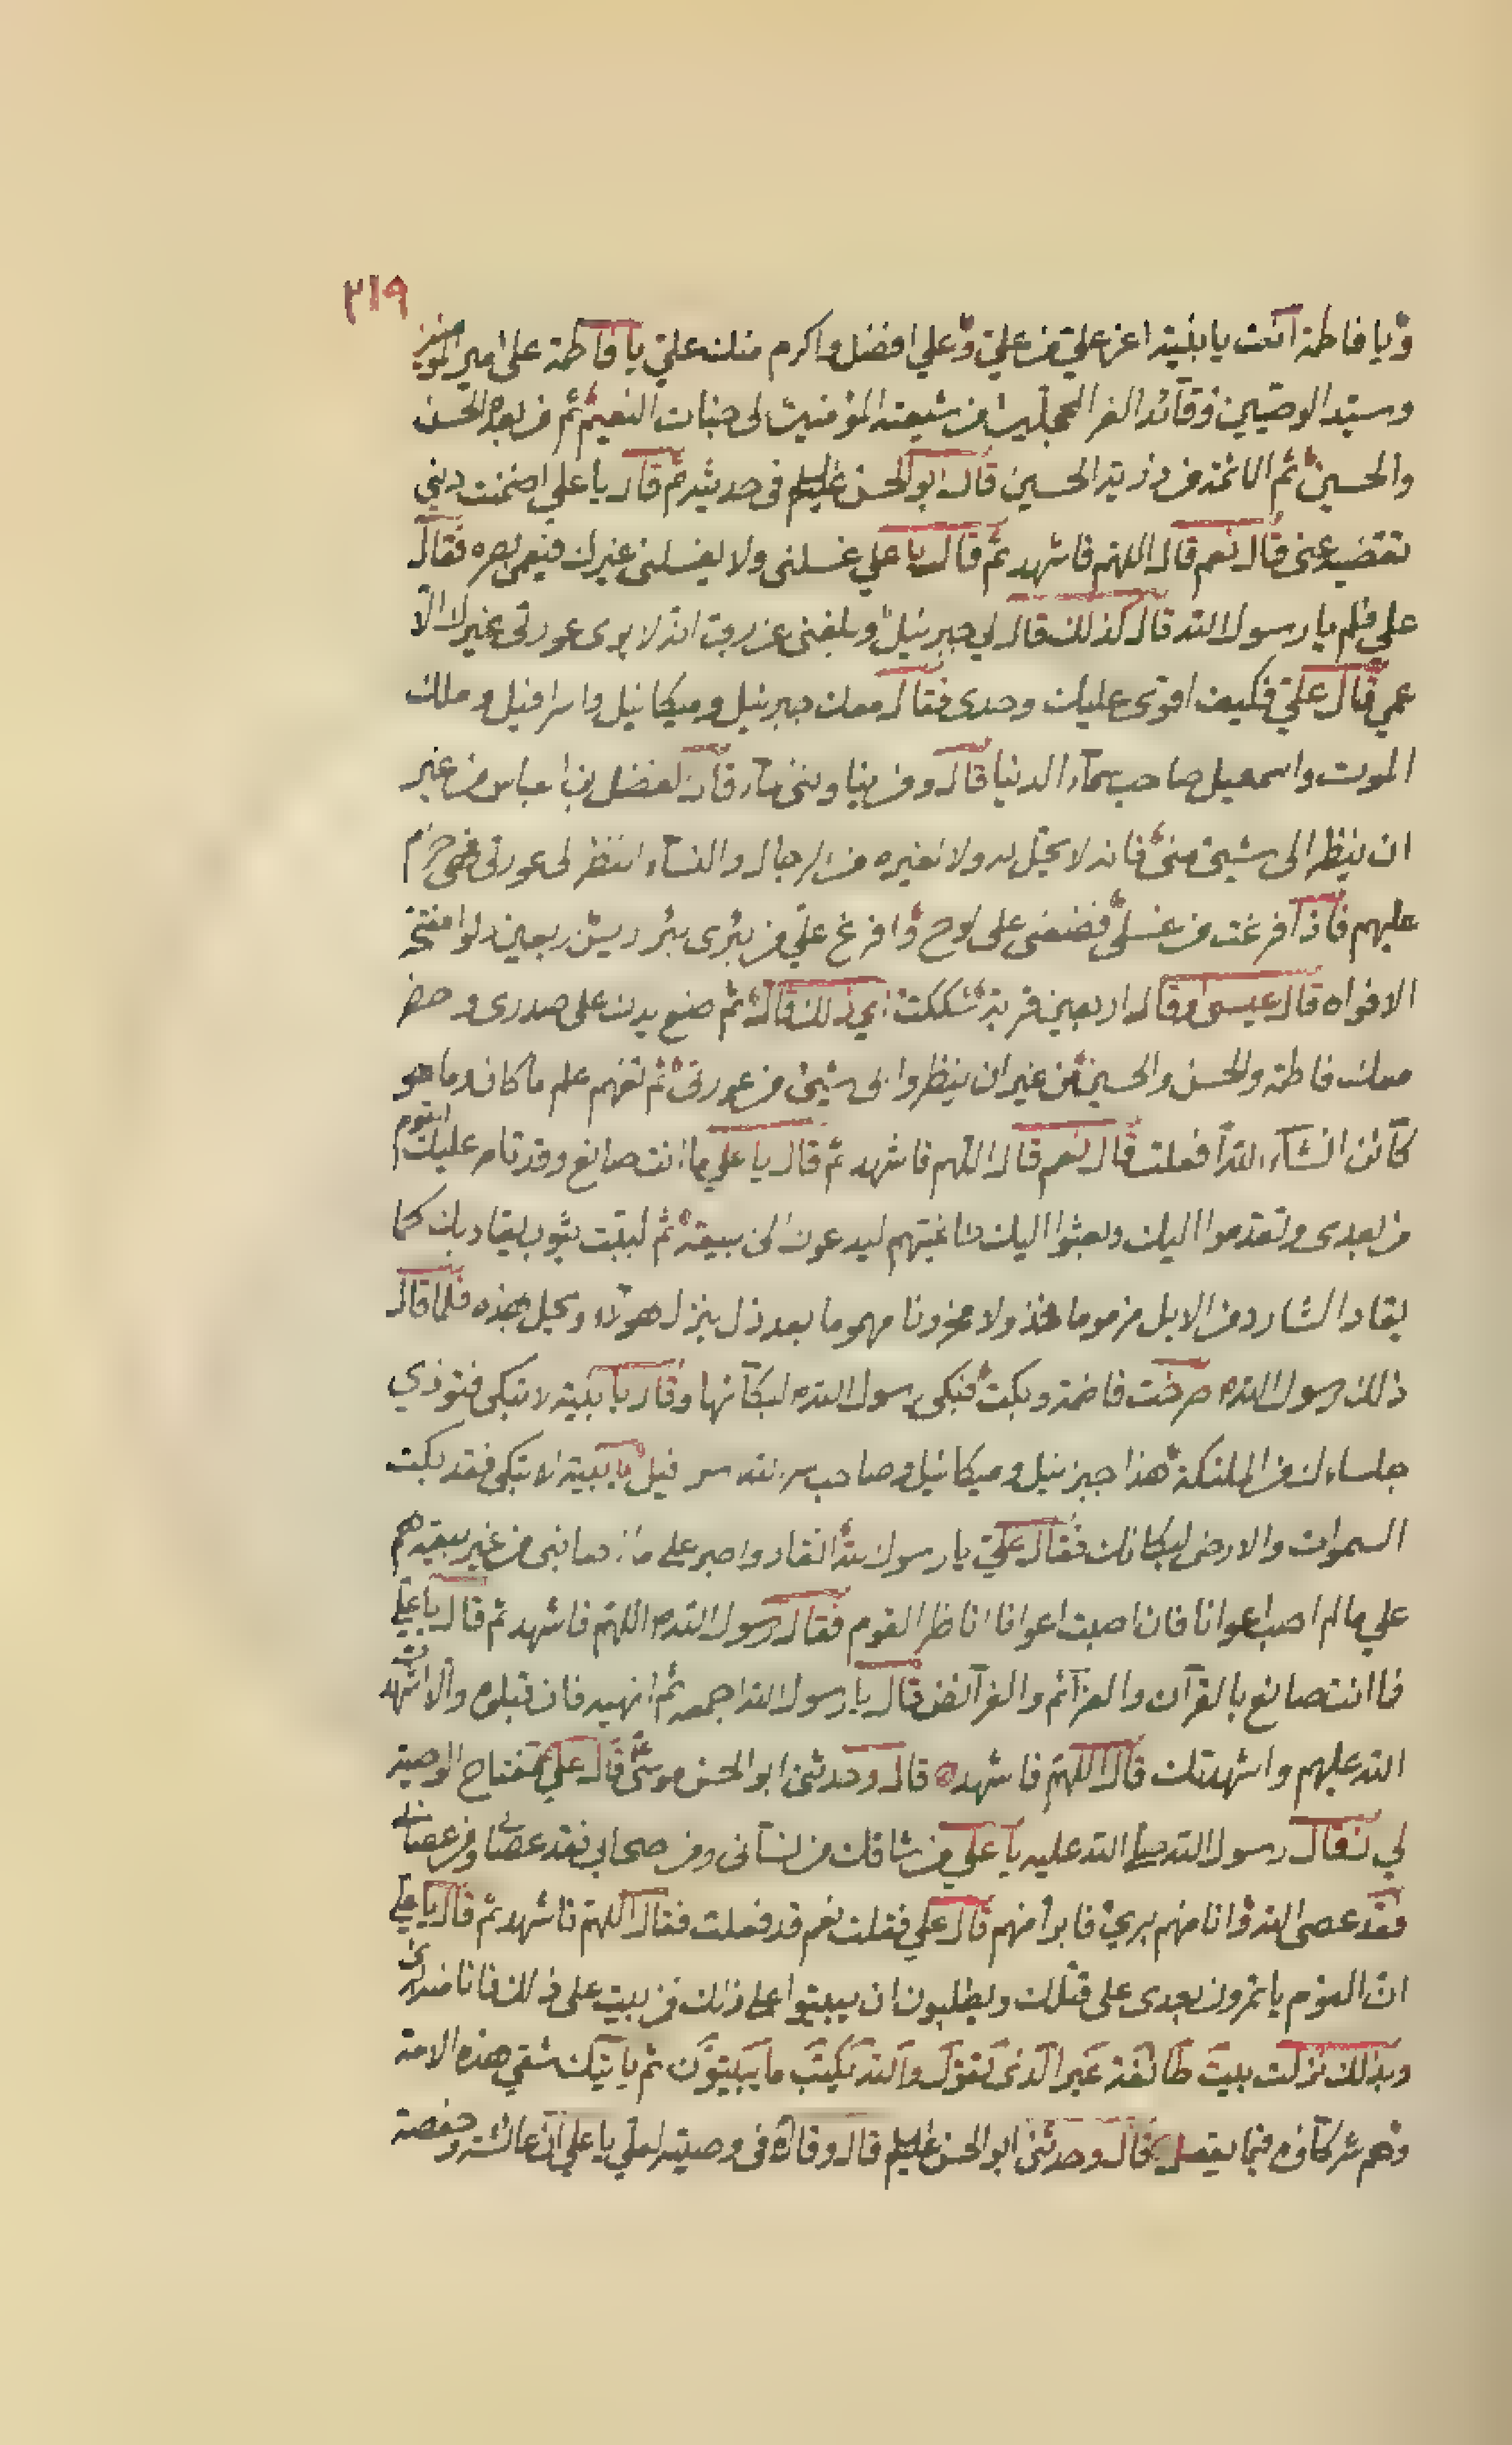 ٢١٩
ويا فاطمة أنت يا بنية اعز علي من علي وعلي افضل واكرم منك علي يا فاطمة علي امير المؤمنين
وسيد الوصيين وقائد الغر المحجلين من شيعته المؤمنين الى جنات النعيم ثم من بعده الحسن
والحسين ثم الائمة من ذرية الحسين قال ابو الحسن عليه السلم في حديثه ثم قال يا علي اضمنت ديني
تقضيه عني قال نعم قال اللهم فاشهد ثم قال يا علي غسلني ولا يغسلني غيرك فيعمى بصره فقال
علي فلم يا رسول الله قال كذلك قال لي جبرئيل وبلغني عن ربي انه لا يرى عورتي غيرك الا
عمي قال علي فكيف اقوى عليك وحدى فقال معك جبرئيل وميكائيل واسرافيل وملك
الموت واسمعيل صاحب سمآء الدنيا قال ومن يناولني المآء قال الفضل بن العباس من غير
ان ينظر الى شيئ مني فانه لا يحل له ولا لغيره من الرجال والنسآء النظر الى عورتي فهي حرام
عليهم فاذا فرغت من غسلي فضعني على لوح وافرغ علي من بئرى بئر اريس اربعين دلوا مفتح
الافواه قال عيسى وقال اربعين قربة شككت في ذلك قال ثم ضع يدك على صدرى واحضر
معك فاطمة والحسن والحسين من غير ان ينظروا الى شيئ من عورتي ثم تفهم علم ما كان وما هو
كآئن انشآء الله افعلت قال نعم قال اللهم فاشهد ثم قال يا علي ما انت صانع وقد تامر عليك القوم
من بعدى وتقدموا اليك وبعثوا اليك طاغيتهم ليدعوك الى بيعته ثم لببت بثوبك يقاد بك كما
يقاد الشارد من الابل مذموما مخذولا محزونا مهموما بعد ذل ينزل هؤلآء ويحل بهذه فلما قال
ذلك رسول الله صرخت فاطمة وبكت فبكى رسول الله لبكآئها وقال يا بنية لا تبكي فتوذي
جلساءك من الملئكة هذا جبرئيل وميكائيل وصاحب سر الله اسرافيل يا بنية لا تبكي فقد بكت
السموات والارض لبكائك فقال علي يا رسول الله انقاد واصبر على ما اصابني من غير بيعة لهم
علي ما لم اصب اعوانا فان اصبت اعوانا اناظر القوم فقال رسول الله اللهم فاشهد ثم قال يا علي
فما انت صانع بالقرآن والعزآئم والفرآئض قال يا رسول الله اجمعه ثم اتيهم به فان قبلوه والا اشهدت
الله عليهم واشهدتك قال اللهم فاشهد قال وحدثني ابو الحسن موسى قال علي مفتاح الوصية
لي فقال رسول الله صلى الله عليه يا علي من شاقك من نسآئى ومن صحابي فقد عصانى ومن عصاني
فقد عصى الله وانا منهم برئ فابرأ منهم قال علي فقلت نعم قد فعلت فقال اللهم فاشهد ثم قال يا علي
ان القوم ياتمرون بعدى على قتلك ويطلبون ان يبيتوا على ذلك فمن يبيت على ذلك فانا منه برئ
وبذلك نزلت بيت طائفة غير الذى تقول والله يكتب ما يبيتون ثم ياتيك شقي هذه الامة
وهم شركآؤه فيما يفعل قال وحدثني ابو الحسن عليه السلم قال وقال في وصيته لعلي يا علي ان عائشة وحفصة